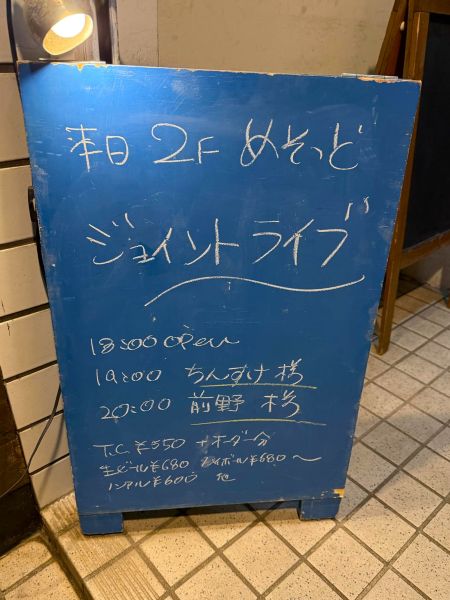 本日 2F めそっど
ジョイントライブ
18:00 open
19:00 ちんすけ様
20:00 前野 様
T.C ¥550 +オーダー分
生ビール¥680 ハイボール¥680〜
ノンアル¥600 他